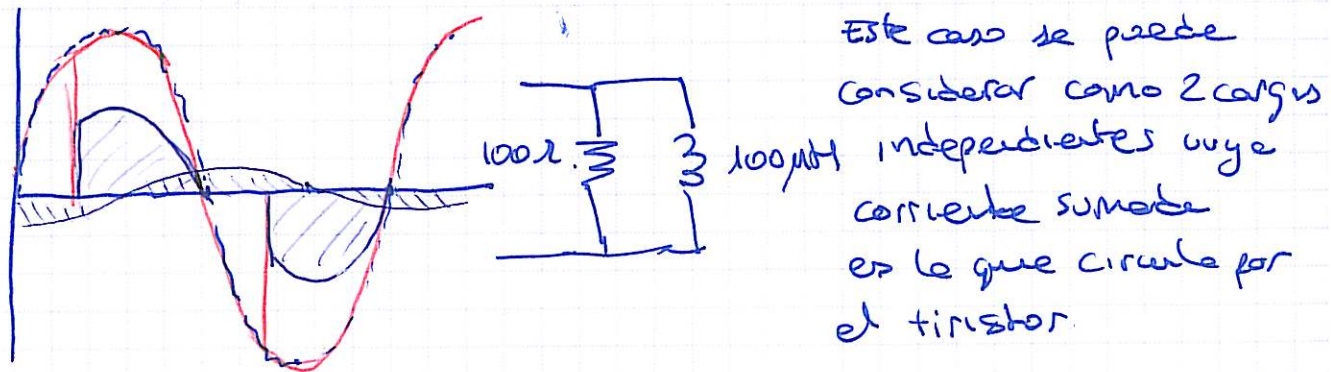 Este caso se puede
considerar como 2 cargas
independientes cuya
corriente sumada
es la que circula por
el tiristor
100Ω
100μH